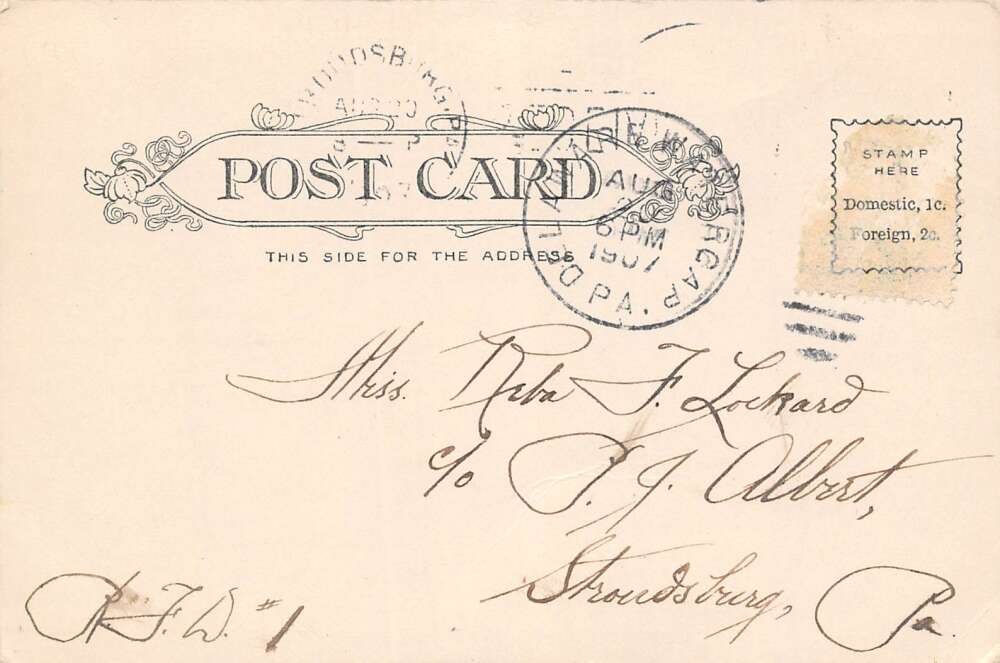 STROUDSBURG, PA.
AUG 20
POST CARD
THIS SIDE FOR THE ADDRESS
DELAWARE WATER GAP, PA.
AUG
6 PM
1907
STAMP
HERE
Domestic, 1c.
Foreign, 2c.
Miss. Reba F. Lockard
c/o P. J. Albert,
Stroudsburg, Pa.
R. F. D. #1